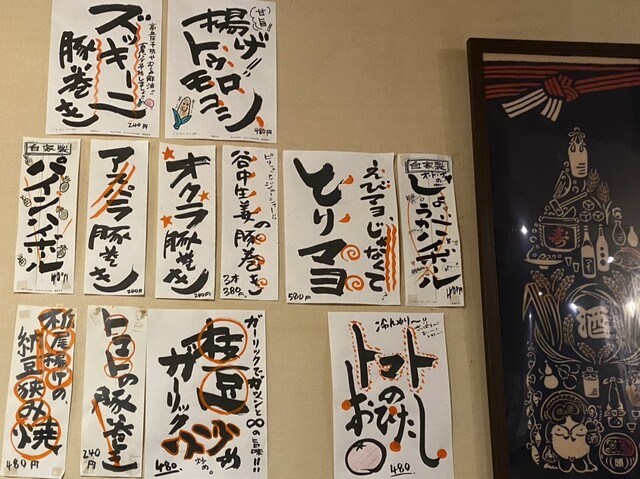 ズッキーニ
豚巻き
240円
甘旨!!
揚げ!!
トウモロコシ
480円
自家製
パインハイボール
480円
アスパラ
豚巻き
240円
オクラ
豚巻き
240円
ピリッとジューシー!!
谷中生姜の
豚巻き
2本
380円
えびマヨじゃなくて
とりマヨ
580円
自家製
オトナの
しょうがハイボール
480円
栃尾揚げの
納豆挟み焼
480円
トマトの豚巻き
240円
ガーリックでガツンと∞の旨味!!!
枝豆
ガーリック
炒め。
480.
冷んやり〜
トマト
のおひたし
480.
寿
酒